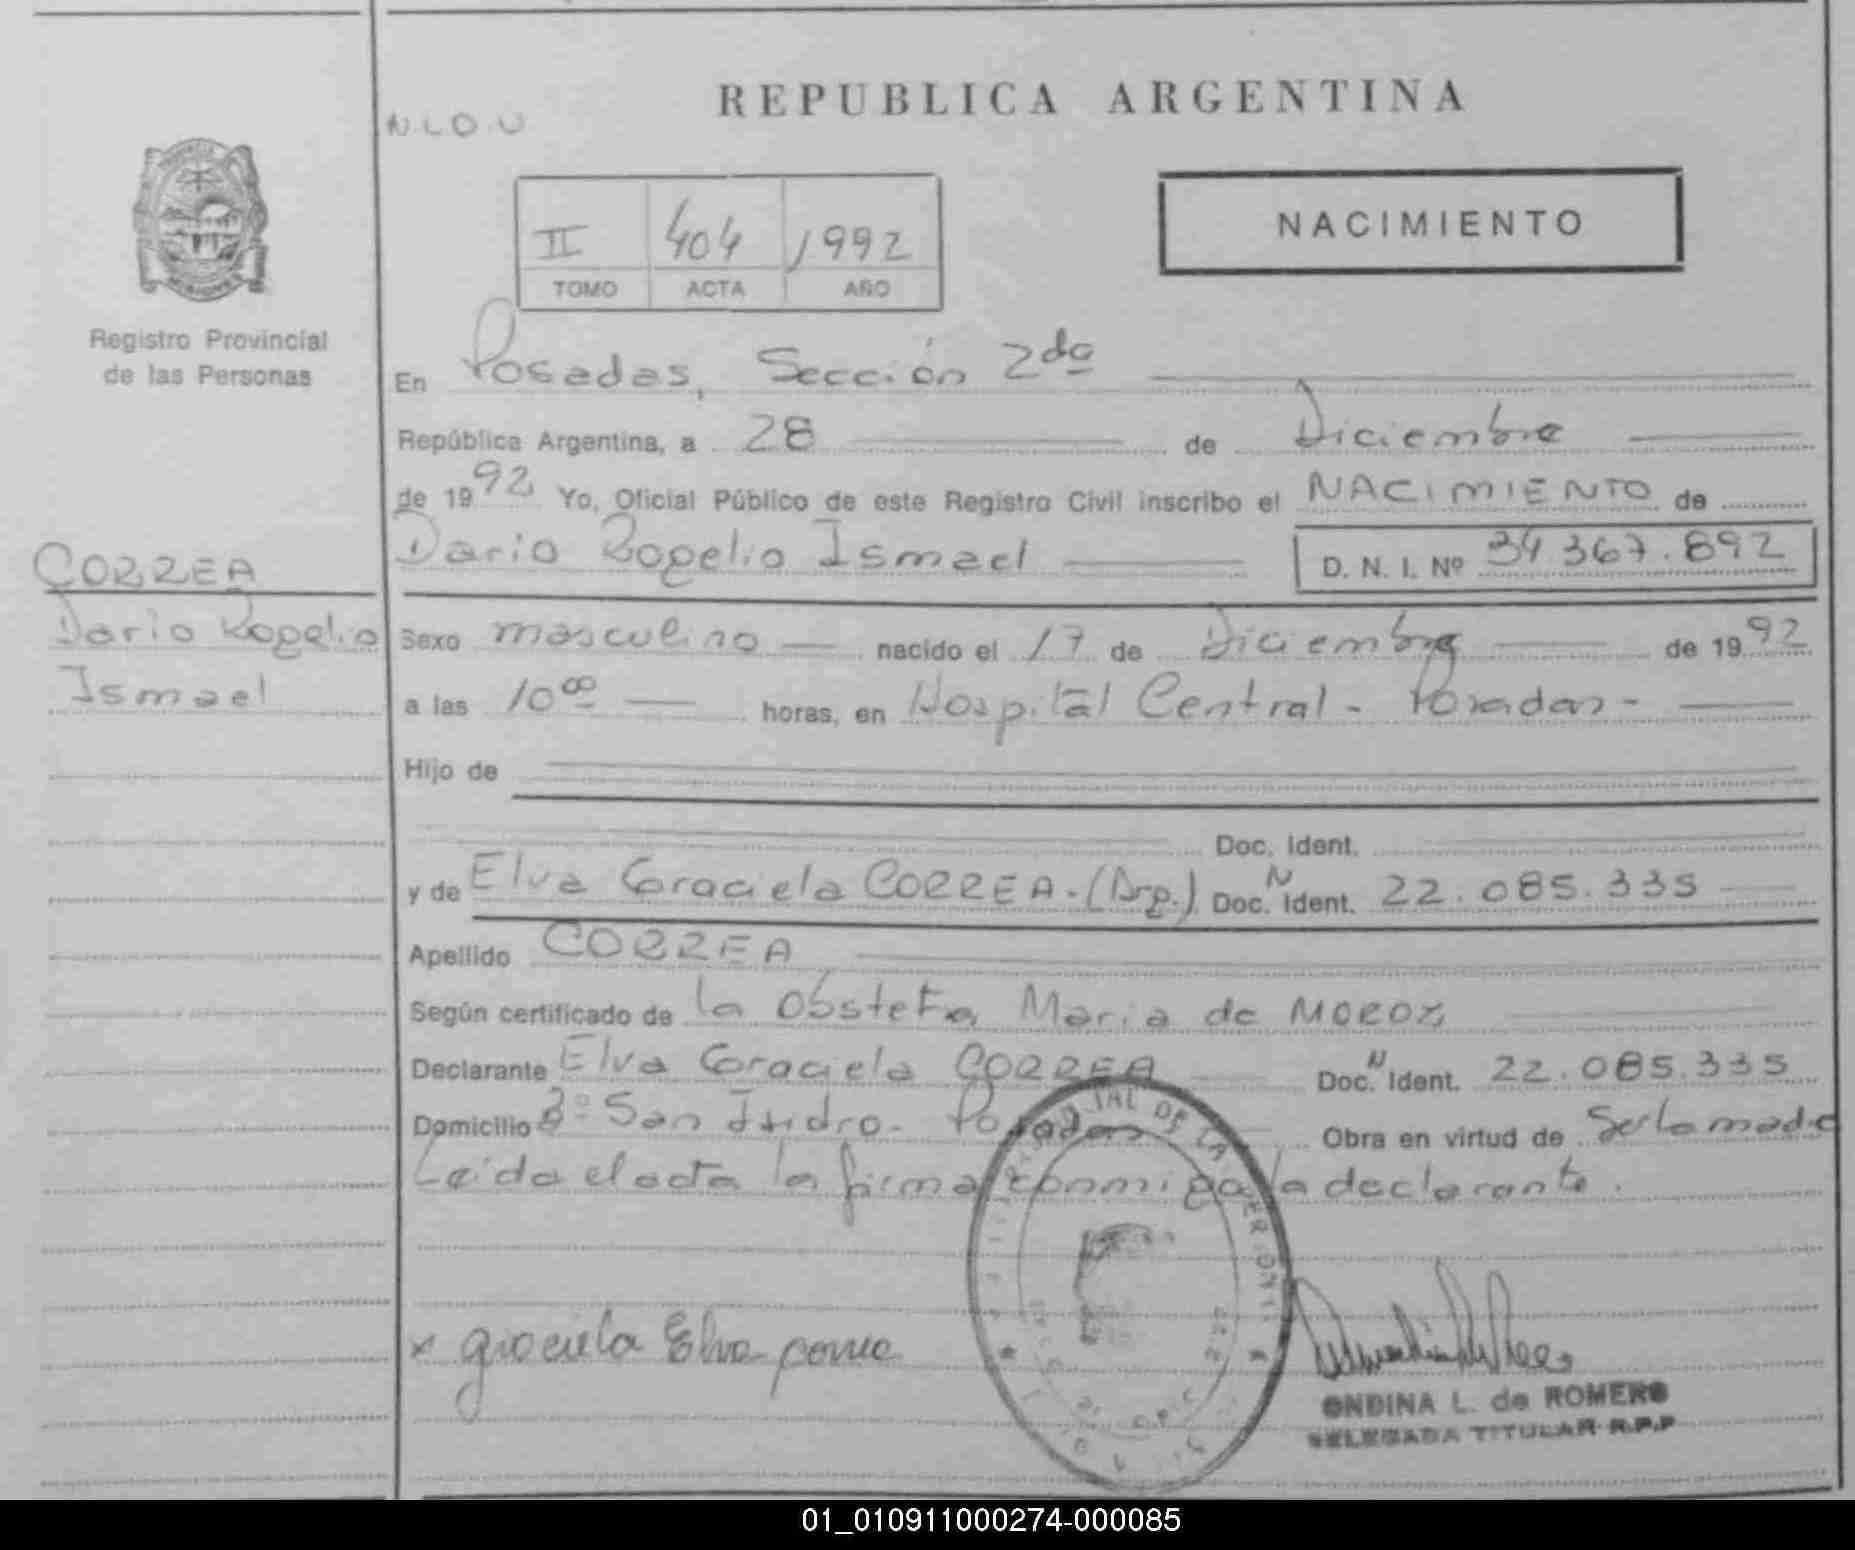 REPUBLICA ARGENTINA
N.L.O.U
II 404 1992
TOMO ACTA AÑO
NACIMIENTO
Registro Provincial
de las Personas
En Posadas, Sección 2da
República Argentina, a 28 de Diciembre
de 1992 Yo, Oficial Público de este Registro Civil inscribo el NACIMIENTO de
Dario Rogelio Ismael D. N. I. Nº 34 367.892
CORREA
Dario Rogelio
Ismael
Sexo masculino nacido el 17 de Diciembre de 1992
a las 10 00 horas, en Hospital Central - Posadas -
Hijo de
Doc. Ident.
y de Elva Graciela CORREA - (Arg.) Doc. N Ident. 22.085.335
Apellido CORREA
Según certificado de la Obstetra Maria de MOROZ
Declarante Elva Graciela CORREA Doc. N Ident. 22.085.335
Domicilio Bº San Isidro - Posadas Obra en virtud de Ser la madre
Leida el acta la firma conmigo la declarante.
x graciela Elva correa
ONDINA L. de ROMERO
DELEGADA TITULAR R.P.P
01_010911000274-000085